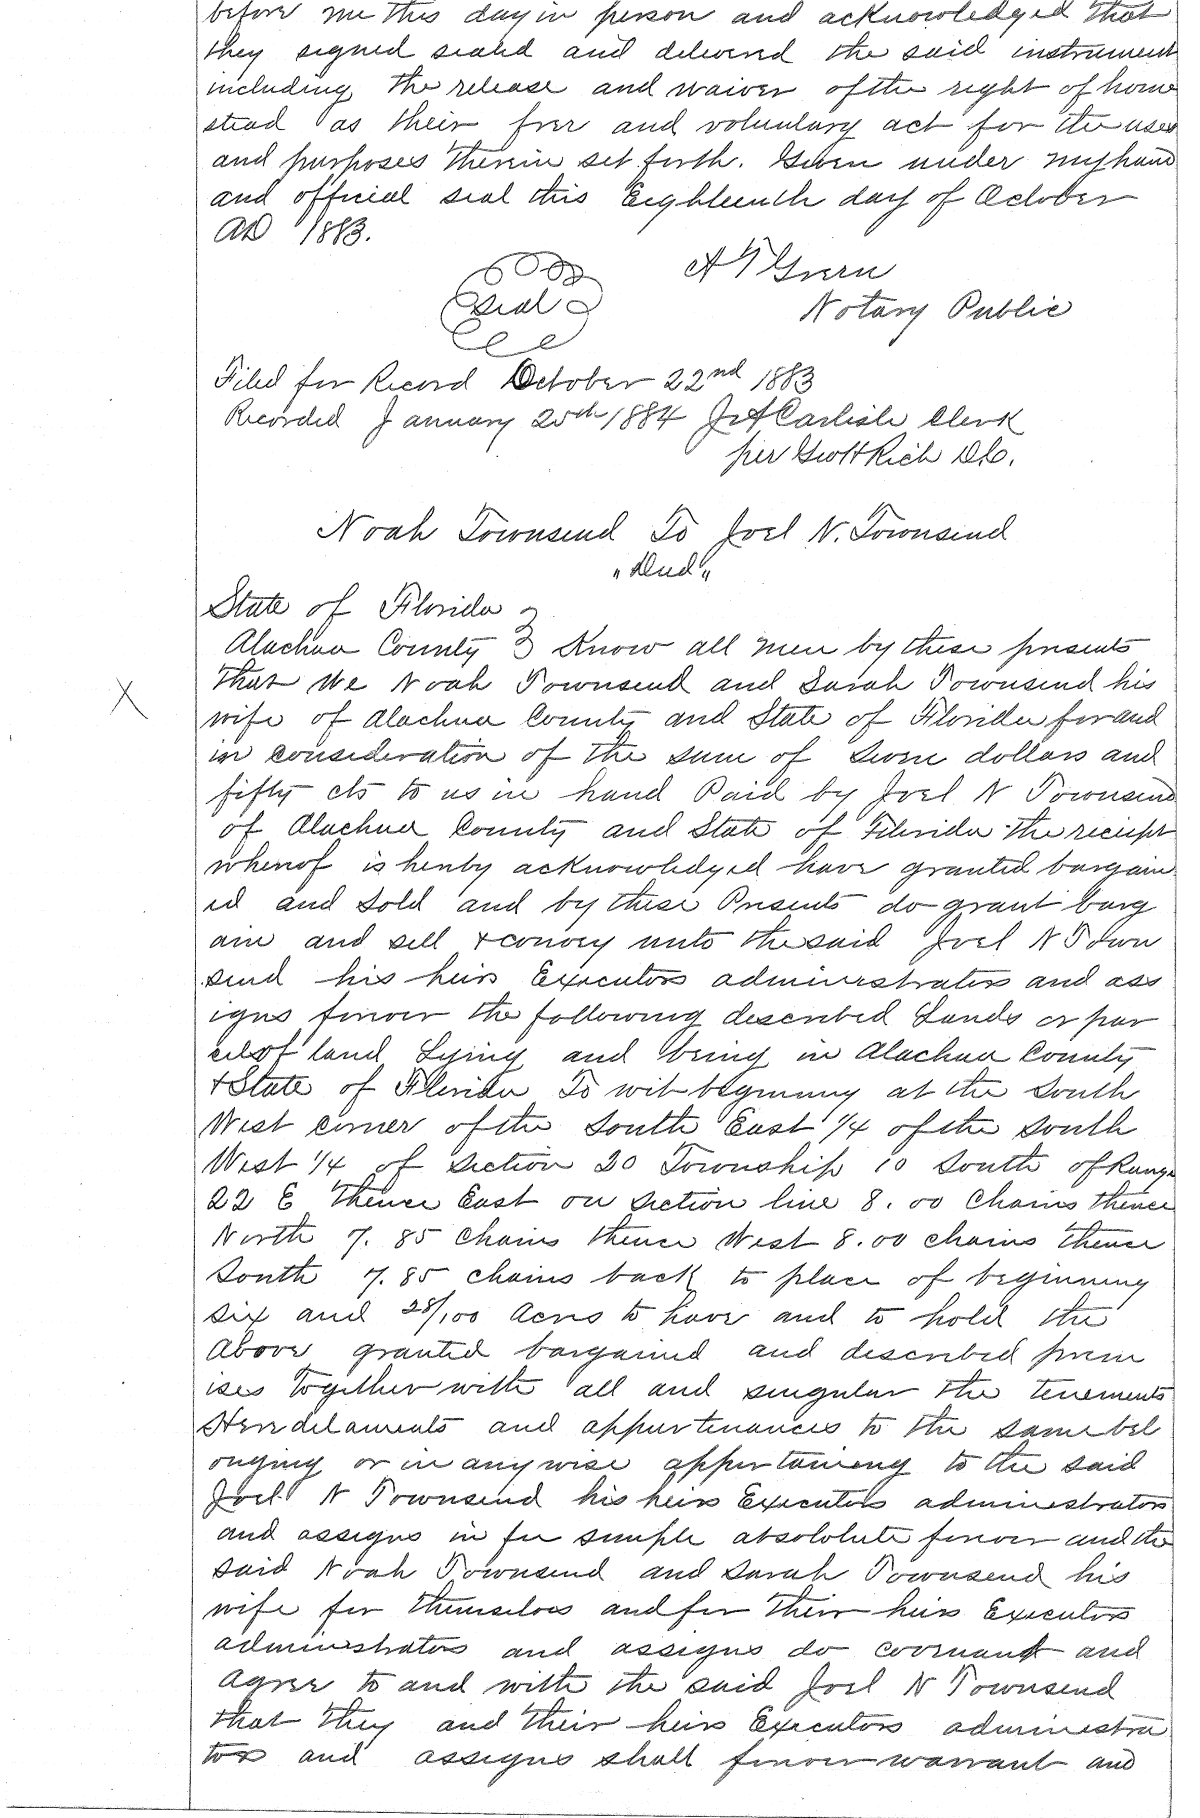 before me this day in person and acknowledged that
they signed sealed and delivered the said instrument
including the release and waiver of the right of home
stead as their free and voluntary act for the uses
and purposes therein set forth. Given under my hand
and official seal this Eighteenth day of October
AD 1883.
A T Green
Seal
Notary Public
Filed for Record October 22nd 1883
Recorded January 25th 1884 J A Carlisle Clerk
per Geo H Rich D.C.
Noah Townsend To Joel N. Townsend
"Deed"
State of Florida
Alachua County } Know all men by these presents
that We Noah Townsend and Sarah Townsend his
wife of Alachua County and State of Florida for and
in consideration of the sum of Seven dollars and
fifty cts to us in hand Paid by Joel N Townsend
of Alachua County and State of Florida the reciept
whereof is hereby acknowledged have granted bargain
ed and Sold and by these Presents do grant barg
ain and sell & convey unto the said Joel N Town
send his heirs Executors administrators and ass
igns forever the following described Lands or par
cels of land Lying and being in Alachua County
& State of Florida To wit beginning at the South
West corner of the South East 1/4 of the South
West 1/4 of Section 20 Township 10 South of Range
22 E Thence East on Section line 8.00 Chains thence
North 7.85 Chains thence West 8.00 chains thence
South 7.85 chains back to place of beginning
six and 28/100 Acres to have and to hold the
Above granted bargained and described prem
ises together with all and singular the tenements
Herredelaments and appurtenances to the same bel
onging or in any wise appertaining to the said
Joel N Townsend his heirs Executors administrators
and assigns in fee simple absololute forever and the
said Noah Townsend and Sarah Townsend his
wife for themselves and for their heirs Executors
administrators and assigns do covenant and
Agree to and with the said Joel N Townsend
that they and their heirs Executors administra
tors and assigns shall forever warrant and